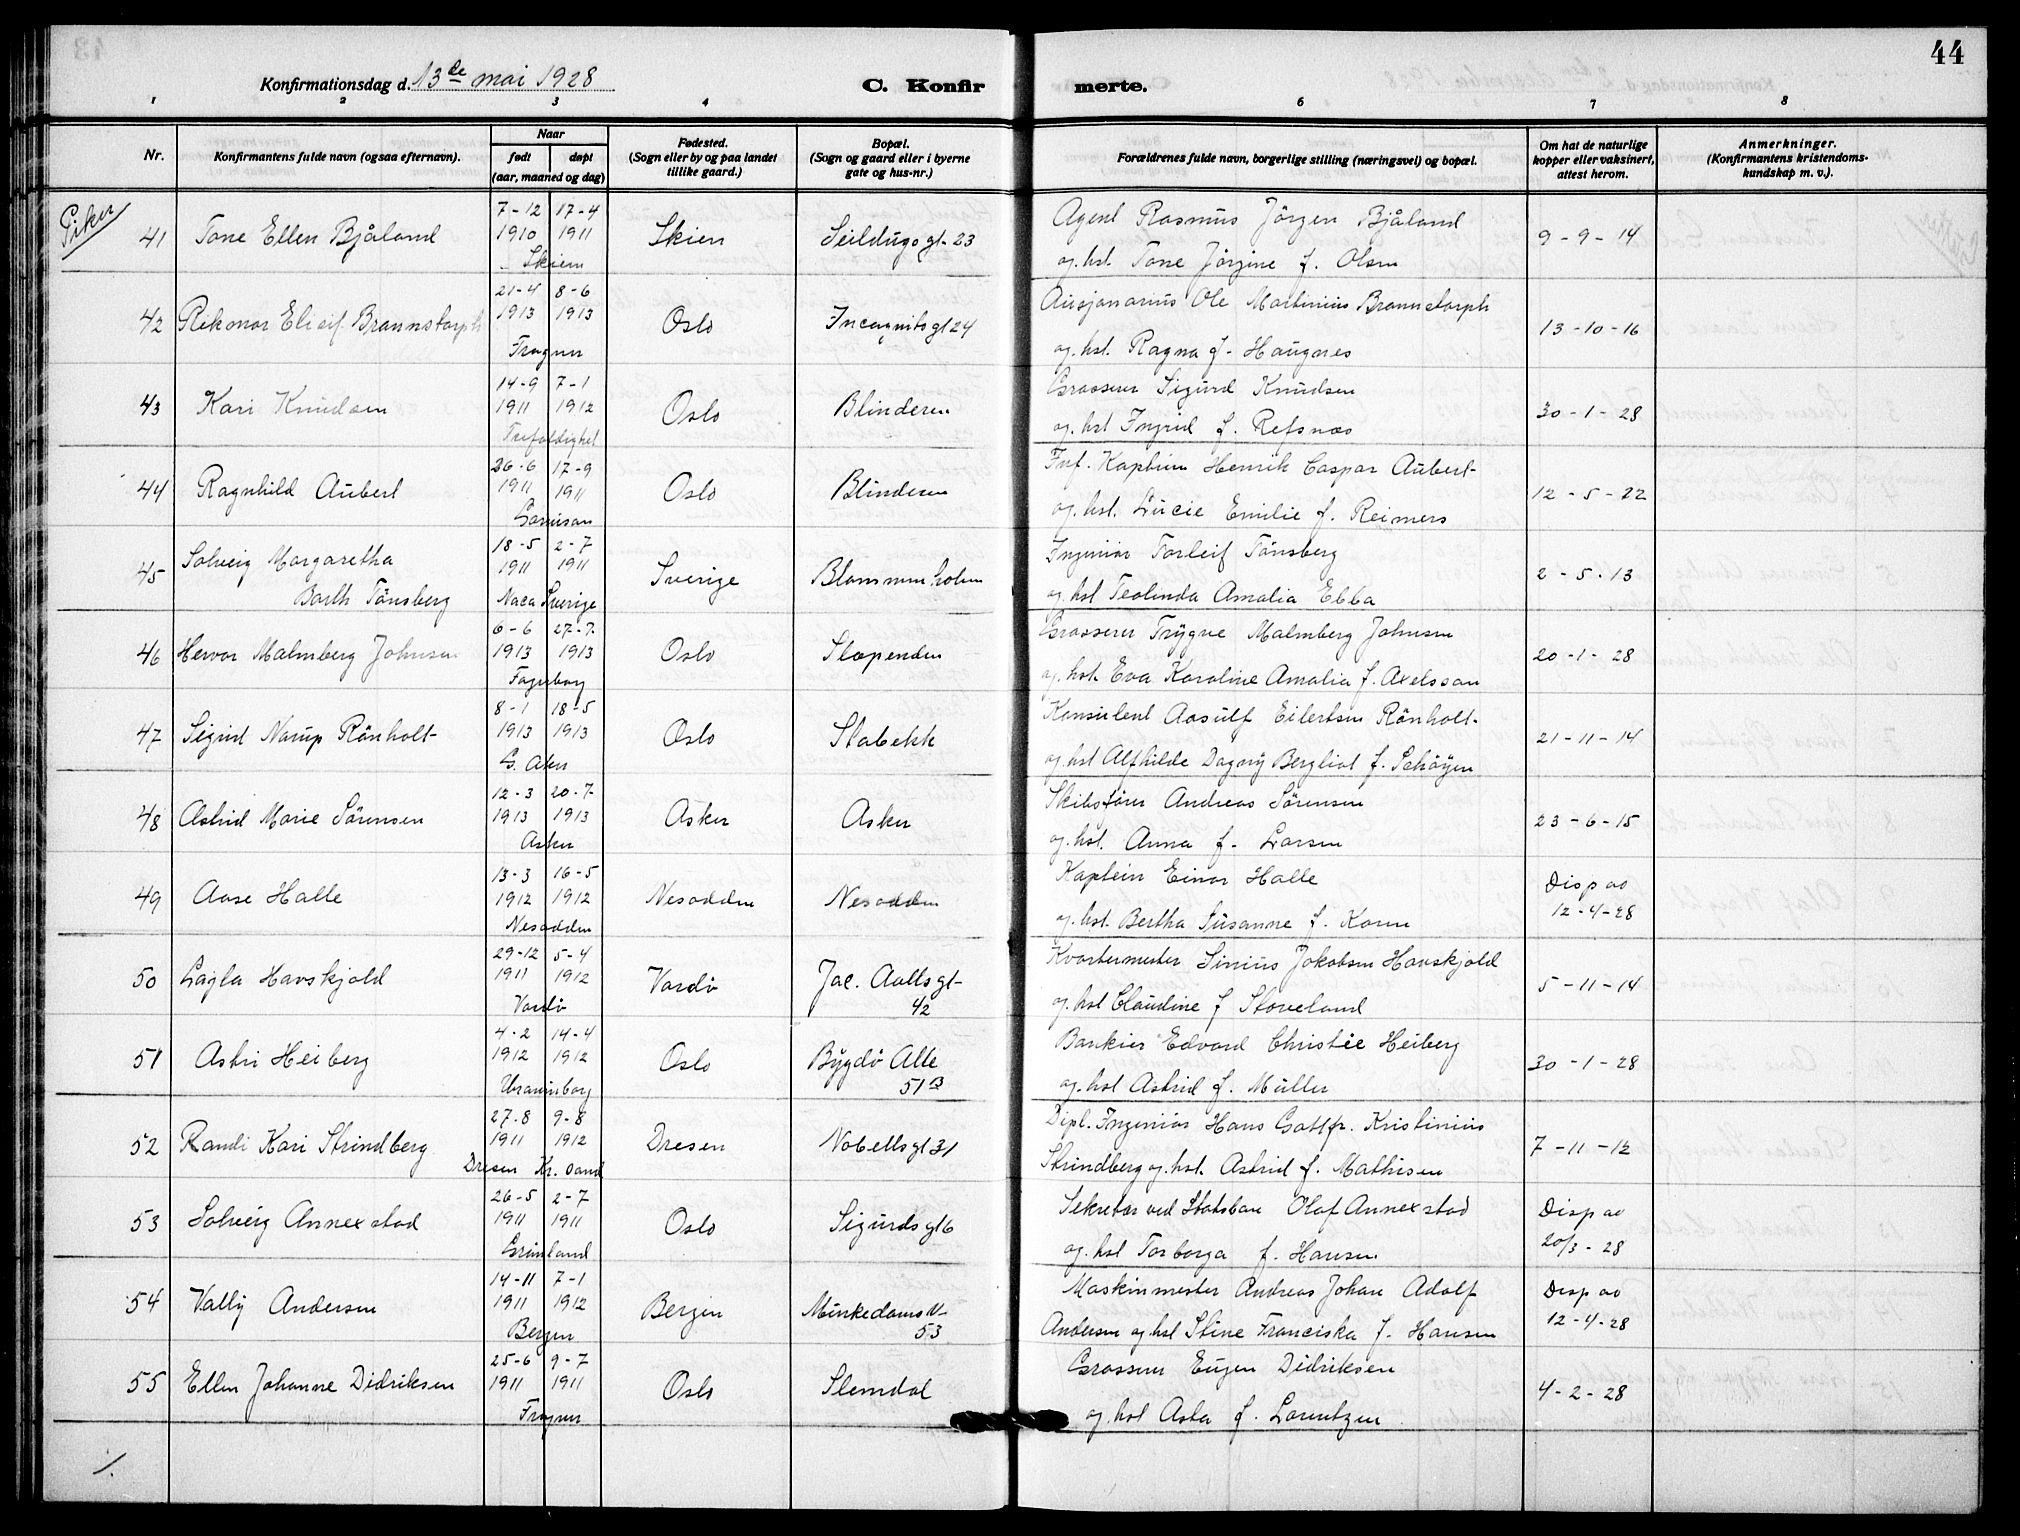 44
Konfirmationsdag d. 13de mai 1928
C. Konfir
merte.
1 2 3 4 6 7 8
Nr.
Konfirmantens fulde navn (ogsaa efternavn).
Naar
født døpt
(aar, maaned og dag)
Fødested.
(Sogn eller by og paa landet
tillike gaard.)
Bopæl.
(Sogn og gaard eller i byerne
gate og hus-nr.)
Forældrenes fulde navn, borgerlige stilling (næringsvei) og bopæl.
Om hat de naturlige
kopper eller vaksinert,
attest herom.
Anmerkninger.
(Konfirmantens kristendoms-
kundskap m. v.).
Piker
7-12 17-4 Agent Rasmus Jörgen Bjåland
41 Tone Ellen Bjåland 1910 1911 Skien Seildugsgt 23 9-9-14
Skien og. hst. Tone Jörgine f. Olsen
21-4 8-6 Ole Martinius Brannstorph
42 Eliсif Brannstorph 1913 1913 Oslo Incognitogt 24 13-10-16
Frogner og. hst. Ragna f. Haugnes
14-9 7-1 Grosserer Sigurd Knudsen
43 Kari Knudsen 1911 1912 Oslo Blinderen 30-1-28
Trefoldighet og. hst Ingrid f. Refsnæs
26-6 17-9 Inf. Kaptein Henrik Caspar Aubert
44 Ragnhild Aubert 1911 1911 Oslo Blinderen 12-5-22
Garnison og. hst. Lucie Emilie f. Reimers
45 Solveig Margaretha 18-5 2-7 Ingeniör Torleif Tönsberg
1911 1911 Sverige Blommenholm 2-5-13
Barth Tönsberg Naca Sverige og hst Teolinda Amalia Ebba
6-6 27-7 Grosserer Trygve Malmberg Johnsen
46 Hervor Malmberg Johnsen 1913 1913 Oslo Slependen 20-1-28
Fagerborg og. hst. Eva Karoline Amalia f. Axelsson
8-1 18-5 Konsulent Aasulf Eilertsen Rönholt
47 Sigrid Narup Rönholt 1913 1913 Oslo Stabekk 21-11-14
G. Aker og hst Alfhilde Dagny Bergliot f. Schöyen
12-3 20-7 Skibsförer Andreas Sörensen
48 Astrid Marie Sörensen 1913 1913 Asker Asker 23-6-15
Asker og. hst. Anna f. Larsen
13-3 16-5 Kaptein Einar Halle Disp av
49 Aase Halle 1912 1912 Nesodden Nesodden 12-4-28
Nesodden og. hst. Bertha Susanne f. Koren
29-12 5-4 Kvartermester Sinius Jakobsen Havskjold
50 Lagla Havskjold 1911 1912 Vardö Jac. Aallsgt 42 5-11-14
Vardö og. hst Claudine f Stoveland
4-2 14-4 Bankier Edvard Christie Heiberg
51 Astri Heiberg 1912 1912 Oslo Bygdö Alle 51B 30-1-28
Uranienborg og. hst Astrid f. Müller
27-8 9-8 Dipl. Ingeniör Hans Gottfr. Kristinius
52 Randi Kari Strindberg 1911 1912 Dresen Nobelsgt 31 7-11-12
Dresen Kr. sand Strindberg og. hst. Astrid f. Mathisen
26-5 2-7 Sekretær ved Statsbane Olaf Annexstad Disp av
53 Solveig Annexstad 1911 1911 Oslo Sigurdsgt 6 20/3-28
Grönland og. hst Torborga f. Hansen
14-11 7-1 Maskinmester Andreas Johan Adolf Disp av
54 Vally Andersen 1911 1912 Bergen Munkedamsv 53 12-4-28
Bergen Andersen og hst Stine Franciska f. Hansen
25-6 9-7 Grosserer Eugen Didriksen
55 Ellen Johanne Didriksen 1911 1911 Oslo Slemdal 4-2-28
Frogner og. hst Asta f. Lorentzen